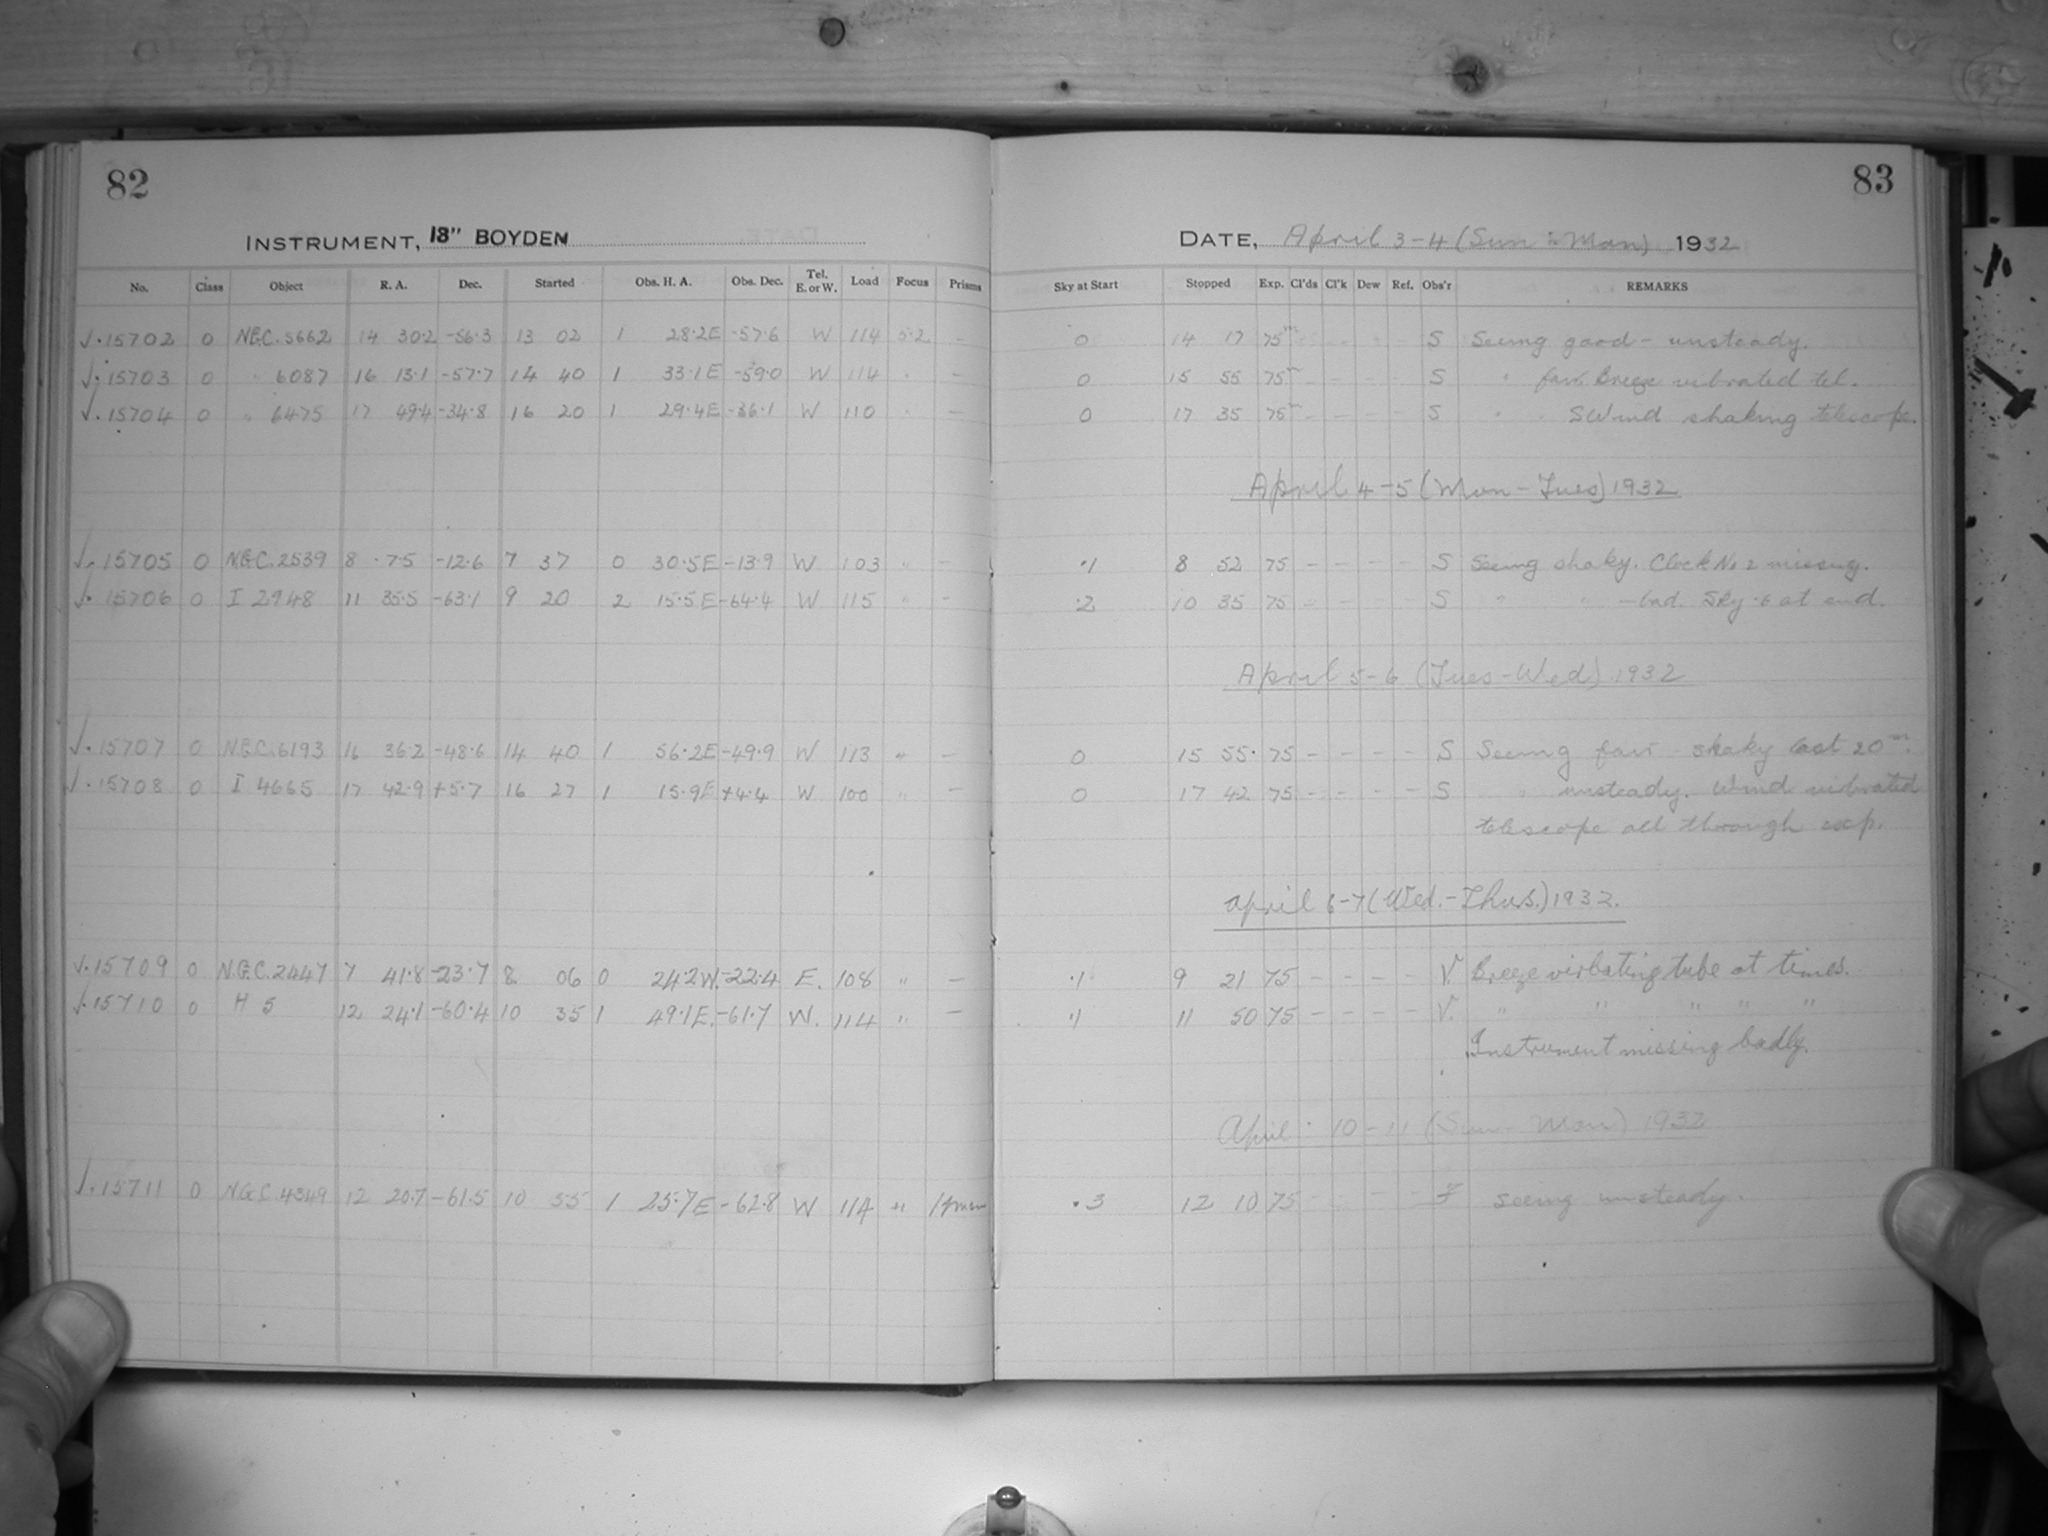 82
INSTRUMENT, 13" BOYDEN
No. Class Object R. A. Dec. Started Obs. H. A. Obs. Dec. Tel. E. or W. Load Focus Prisms
√.15702 0 N.G.C. 5662 14 30.2 -56.3 13 02 1 28.2E -57.6 W 114 5.2 -
√.15703 0 " 6087 16 13.1 -57.7 14 40 1 33.1E -59.0 W 114 " -
√.15704 0 " 6475 17 49.4 -34.8 16 20 1 29.4E -36.1 W 110 " -
√.15705 0 N.G.C. 2539 8 .7.5 -12.6 7 37 0 30.5E -13.9 W 103 " -
√.15706 0 I 2948 11 35.5 -63.1 9 20 2 15.5E -64.4 W 115 " -
√.15707 0 N.G.C. 6193 16 36.2 -48.6 14 40 1 56.2E -49.9 W 113 " -
√.15708 0 I 4665 17 42.9 +5.7 16 27 1 15.9E +4.4 W 100 " -
√.15709 0 N.G.C. 2447 7 41.8 -23.7 8 06 0 24.2W. -22.4 E. 108 " -
√.15710 0 H 5 12 24.1 -60.4 10 35 1 49.1E. -61.7 W. 114 " -
√.15711 0 N.G.C. 4349 12 20.7 -61.5 10 55 1 25.7E -62.8 W 114 "
83
DATE, April 3-4 (Sun - Mon) 1932
Sky at Start Stopped Exp. Cl'ds Cl'k Dew Ref. Obs'r REMARKS
0 14 17 75m - - - - S Seeing good - unsteady.
0 15 55 75m - - - - S " fair. Breeze vibrated tel.
0 17 35 75m - - - - S " " SWind shaking telescope.
April 4-5 (Mon - Tues) 1932
.1 8 52 75 - - - - S Seeing shaky. Clock No 2 missing.
.2 10 35 75 - - - - S " " - bad. Sky .6 at end.
April 5-6 (Tues - Wed) 1932
0 15 55. 75 - - - - S Seeing fair - shaky last 20m.
0 17 42 75 - - - - S " unsteady. Wind vibrated
telescope all through exp.
April 6-7 (Wed. - Thurs.) 1932.
.1 9 21 75 - - - - V. Breeze virbating tube at times.
.1 11 50 75 - - - - V. " " " " "
Instrument missing badly.
April 10-11 (Sun - Mon) 1932
.3 12 10 75 - - - - F seeing unsteady.